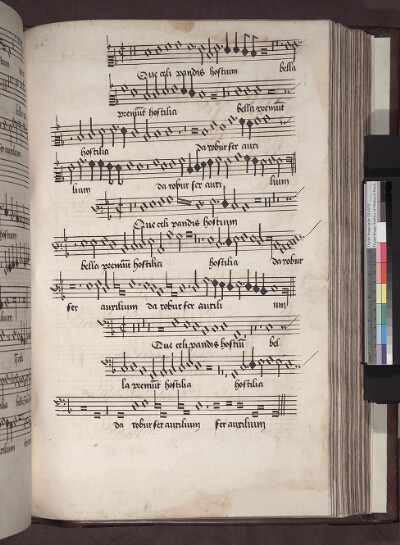 Que celi pandis hostium bella
premūt hostilia bella premūt
hostilia da robur fer auxi
lium da robur fer auxi lium
Que celi pandis hostium
bella premūt hostilia hostilia da robur
fer auxilium da robur fer auxili um
Que celi pandis hostiū bel
la premūt hostilia hostilia
da robur fer auxilium fer auxilium